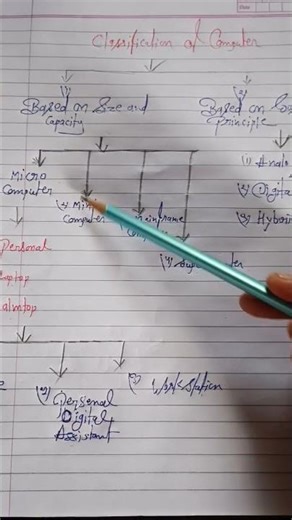 Classification of Computer
(1)
Based on Size and
Capacity
Based on
Principle
Micro
Computer
(2) Mini
Computer
(4)
(1) Analo
(2) Digita
(3) Hybri
Personal
(2) Personal
Digital
Assistant
(3) Work Station